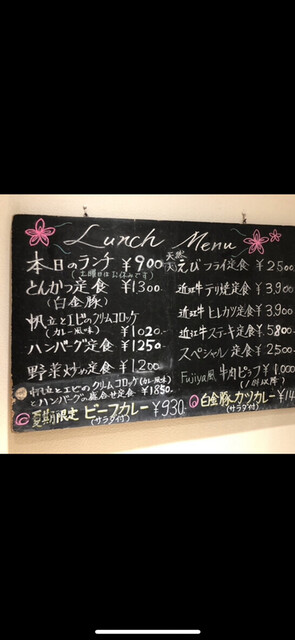 Lunch Menu
本日のランチ ¥900
(土曜日はお休みです)
とんかつ定食 ¥1300
(白金豚)
帆立とエビのクリムコロッケ
(カレー風味) ¥1020
ハンバーグ定食 ¥1250
野菜炒め定食 ¥1,200
帆立とエビのクリムコロッケ(カレー風味)
とハンバーグの盛合せ定食 ¥1850
夏期限定 ビーフカレー ¥930
(サラダ付)
天然(大)えびフライ定食 ¥2500
近江牛テリ焼定食 ¥3,900
近江牛ヒレカツ定食 ¥3,900
近江牛ステーキ定食 ¥5800
スペシャル定食 ¥2500
Fujiya風 牛肉ピラフ ¥1,000
(1時以降)
白金豚カツカレー ¥14
(サラダ付)